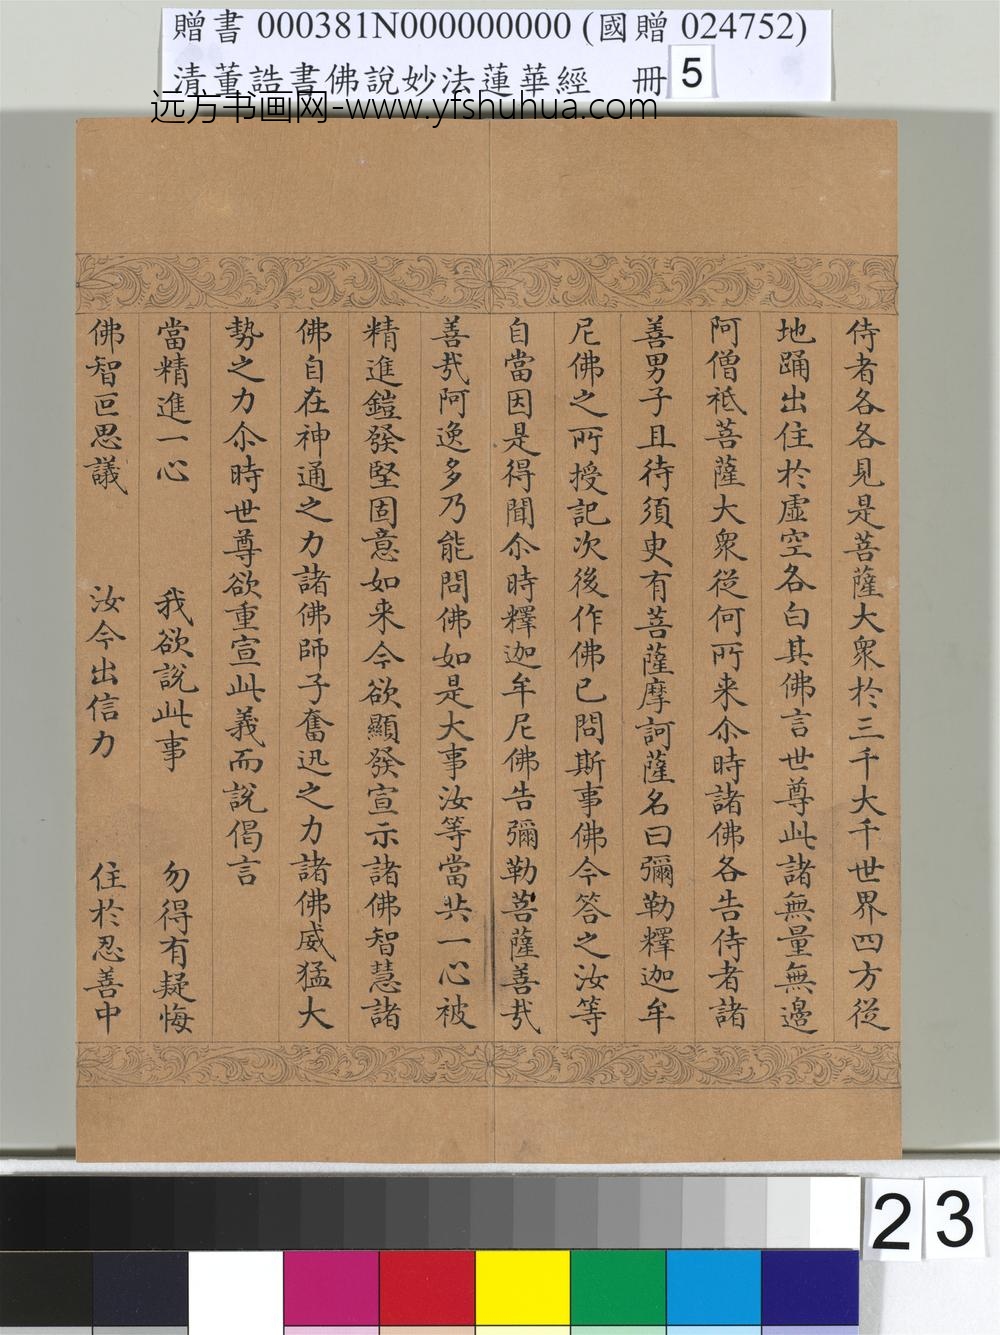 贈書 000381N000000000 (國贈 024752)
清董誥書佛說妙法蓮華經 冊 5
远方书画网-www.yfshuhua.com
侍者各各見是菩薩大衆於三千大千世界四方從
地踊出住於虛空各白其佛言世尊此諸無量無邊
阿僧祇菩薩大衆從何所来尒時諸佛各告侍者諸
善男子且待須臾有菩薩摩訶薩名曰彌勒釋迦牟
尼佛之所授記次後作佛已問斯事佛今答之汝等
自當因是得聞尒時釋迦牟尼佛告彌勒菩薩善哉
善哉阿逸多乃能問佛如是大事汝等當共一心被
精進鎧發堅固意如来今欲顯發宣示諸佛智慧諸
佛自在神通之力諸佛師子奮迅之力諸佛威猛大
勢之力尒時世尊欲重宣此義而說偈言
當精進一心 我欲說此事 勿得有疑悔
佛智叵思議 汝今出信力 住於忍善中
23